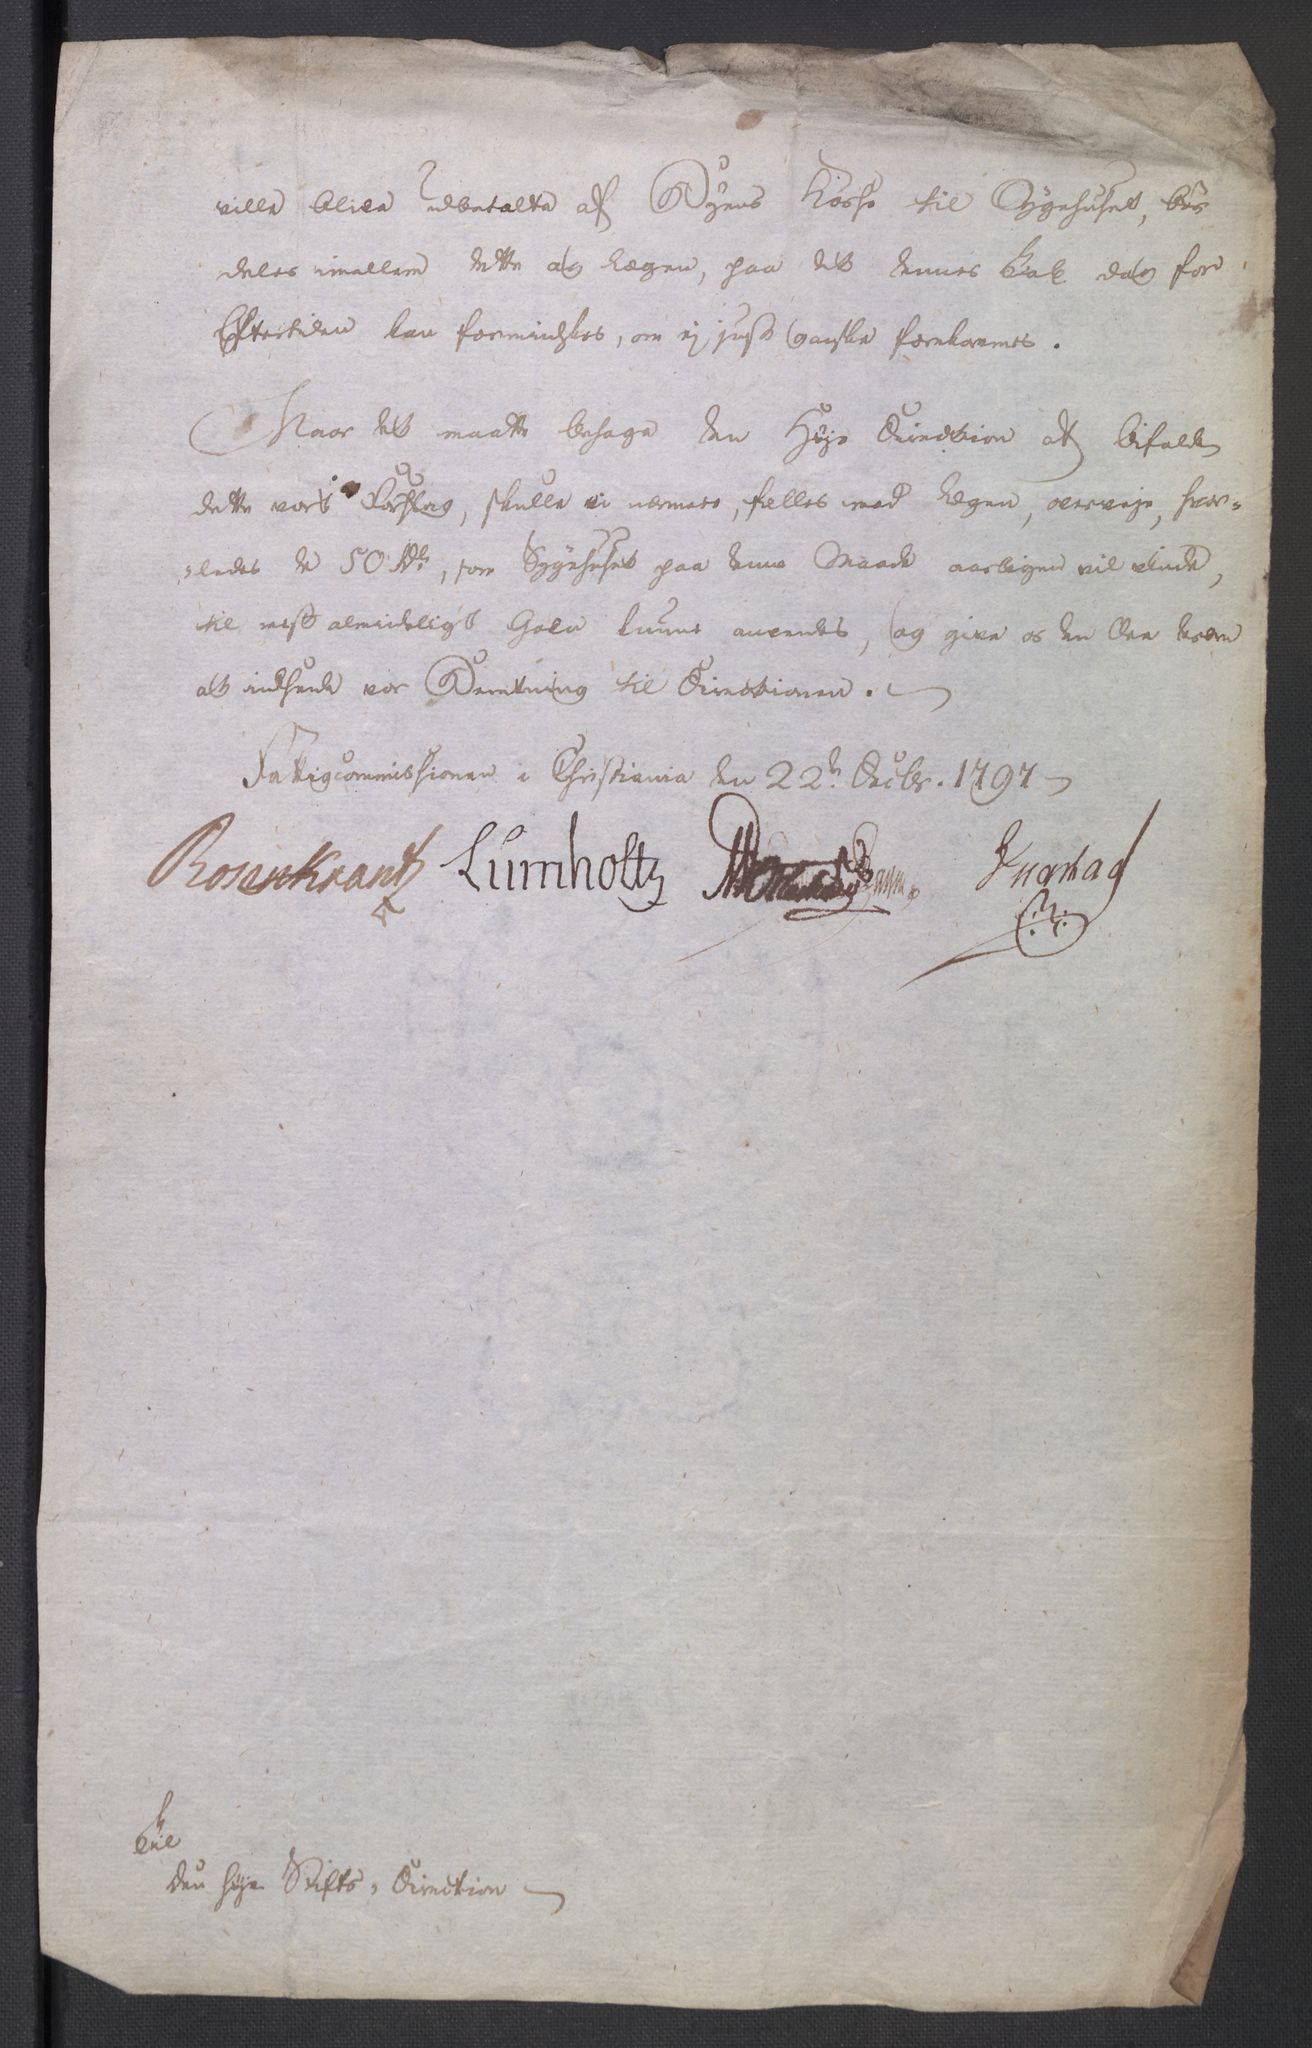 ville blive udbetalte af Byens Kasse til Sygehuset, bør
deles imellem dette og Lægen, paa det dennes Tab dog for
Eftertiden kan formindskes, om ej just ganske forekommes.
Naar det maatte behage den Høje Direction at bifalde
dette vort Forslag, skulle vi nærmere, fælles med Lægen, overveje, hvor-
-ledes de 50 Rdr, som Sygehuset paa denne Maade aarligen vil vinde,
til mest almindeligt Gavn kunne anvendes, og give os den Ære derom
at indsende vor Betænkning til Directionen.
Fattigcommissionen i Christiania den 22de Decbr. 1797
Rosenkrantz Lumholtz
Til
den høje Stifts-Direction